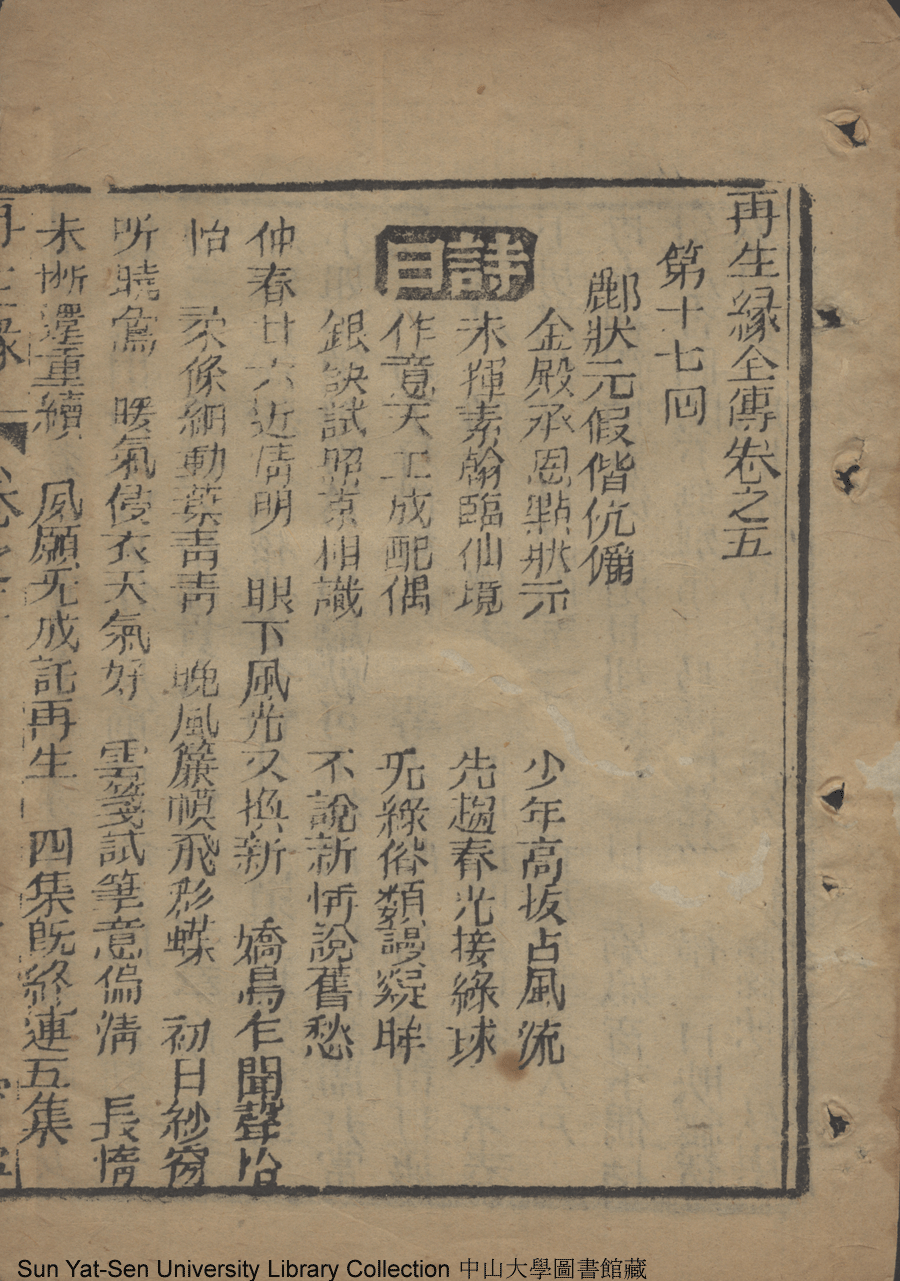 再生緣全傳卷之五
第十七回
酈狀元假偕伉儷
詩曰
金殿承恩點狀元 少年高拔占風流
未揮素翰臨仙境 先趨春光接綵球
作意天工成配偶 无緣俗類謾窺眸
銀缺試照京相識 不說新情說舊愁
仲春廿六近清明 眼下風光又換新 嬌鳥乍聞聲恰
怡 柔條細動葉青青 晚風簾幙飛彩蝶 初日紗窗
听曉鶯 暖氣侵衣天氣好 雲箋試筆意偏清 長情
未斷還重續 夙願无成託再生 四集既終連五集
Sun Yat-Sen University Library Collection 中山大學圖書館藏